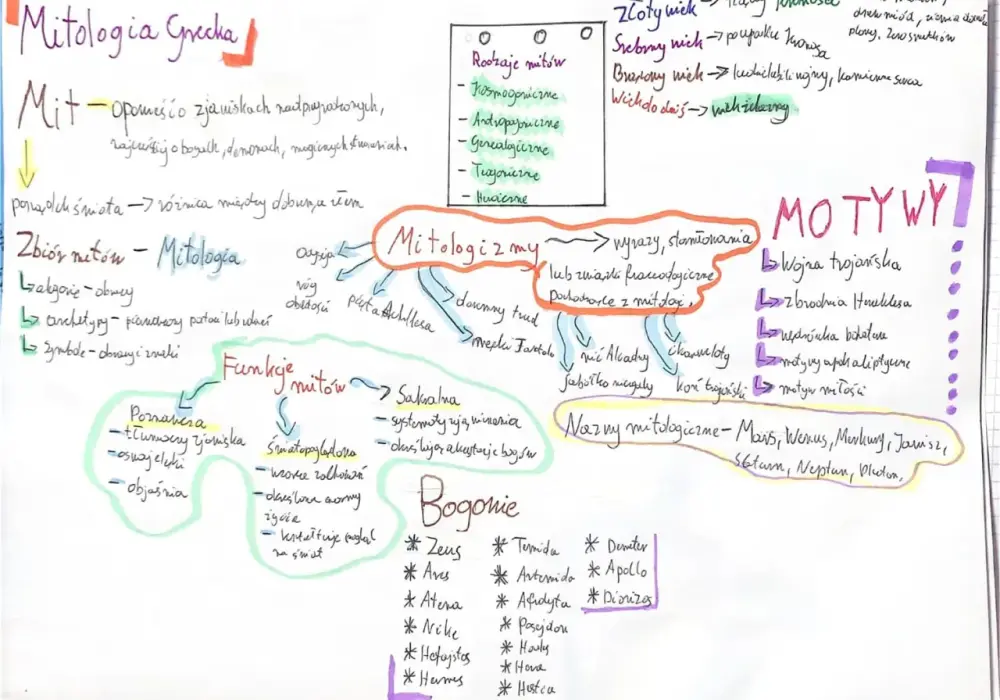 Mitologia Grecka
Mit – opowieść o zjawiskach nadprzyrodzonych,
najczęściej o bogach, demonach, magicznych stworzeniach.
porządek świata → różnica między dobrem, a złem
Zbiór mitów – Mitologia
alegorie – obrazy
archetypy – pierwotny postaci lub zdarzeń
symbole – obrazy i znaki
Rodzaje mitów
- Kosmogoniczne
- Antropogeniczne
- Genealogiczne
- Teogoniczne
- Heroiczne
Złoty wiek →
Srebrny wiek → po upadku Kronosa
Brązowy wiek → ludzie lubili wojny, kamienne serca
Wiek do dziś → wiek żelazny
Mitologizmy → wyrazy, sformułowania
lub związki frazeologiczne
pochodzące z mitologi.
róg
obfitości
pięta Achillesa
daremny trud
męki Tantala
nić Ariadny
jabłko niezgody
ikarowe loty
koń trojański
MOTYWY
Wojna trojańska
zbrodnia Heraklesa
wędrówka bohatera
motywy apokaliptyczne
motyw miłości
Nazwy mitologiczne – Mars, Wenus, Merkury, Jowisz,
Saturn, Neptun, Pluton,
Funkcje
mitów
Poznawcza
- tłumaczy zjawiska
- oswaja lęki
- objaśnia
światopoglądowa
- wzorce zachowań
- określone normy
życia
- kształtuje pogląd
na świat
Sakralna
- systematyzują wierzenia
- określają charakterystykę bogów
Bogowie
* Zeus
* Ares
* Atena
* Nike
* Hefajstos
* Hermes
* Temida
* Artemida
* Afrodyta
* Posejdon
* Hades
* Hera
* Hestia
* Demeter
* Apollo
* Dionizos